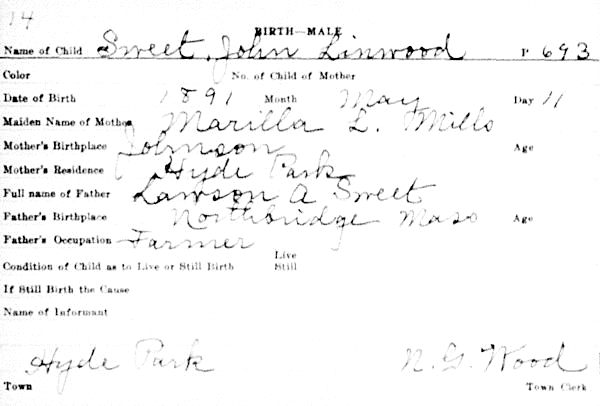 14
BIRTH—MALE
Name of Child Sweet, John Linwood P 693
Color No. of Child of Mother
Date of Birth 1891 Month May Day 11
Maiden Name of Mother Marilla L. Mills
Mother's Birthplace Johnson Age
Mother's Residence Hyde Park
Full name of Father Lawson A Sweet
Father's Birthplace Northbridge Mass Age
Father's Occupation Farmer
Live
Condition of Child as to Live or Still Birth Still
If Still Birth the Cause
Name of Informant
Hyde Park N. G. Wood
Town Town Clerk